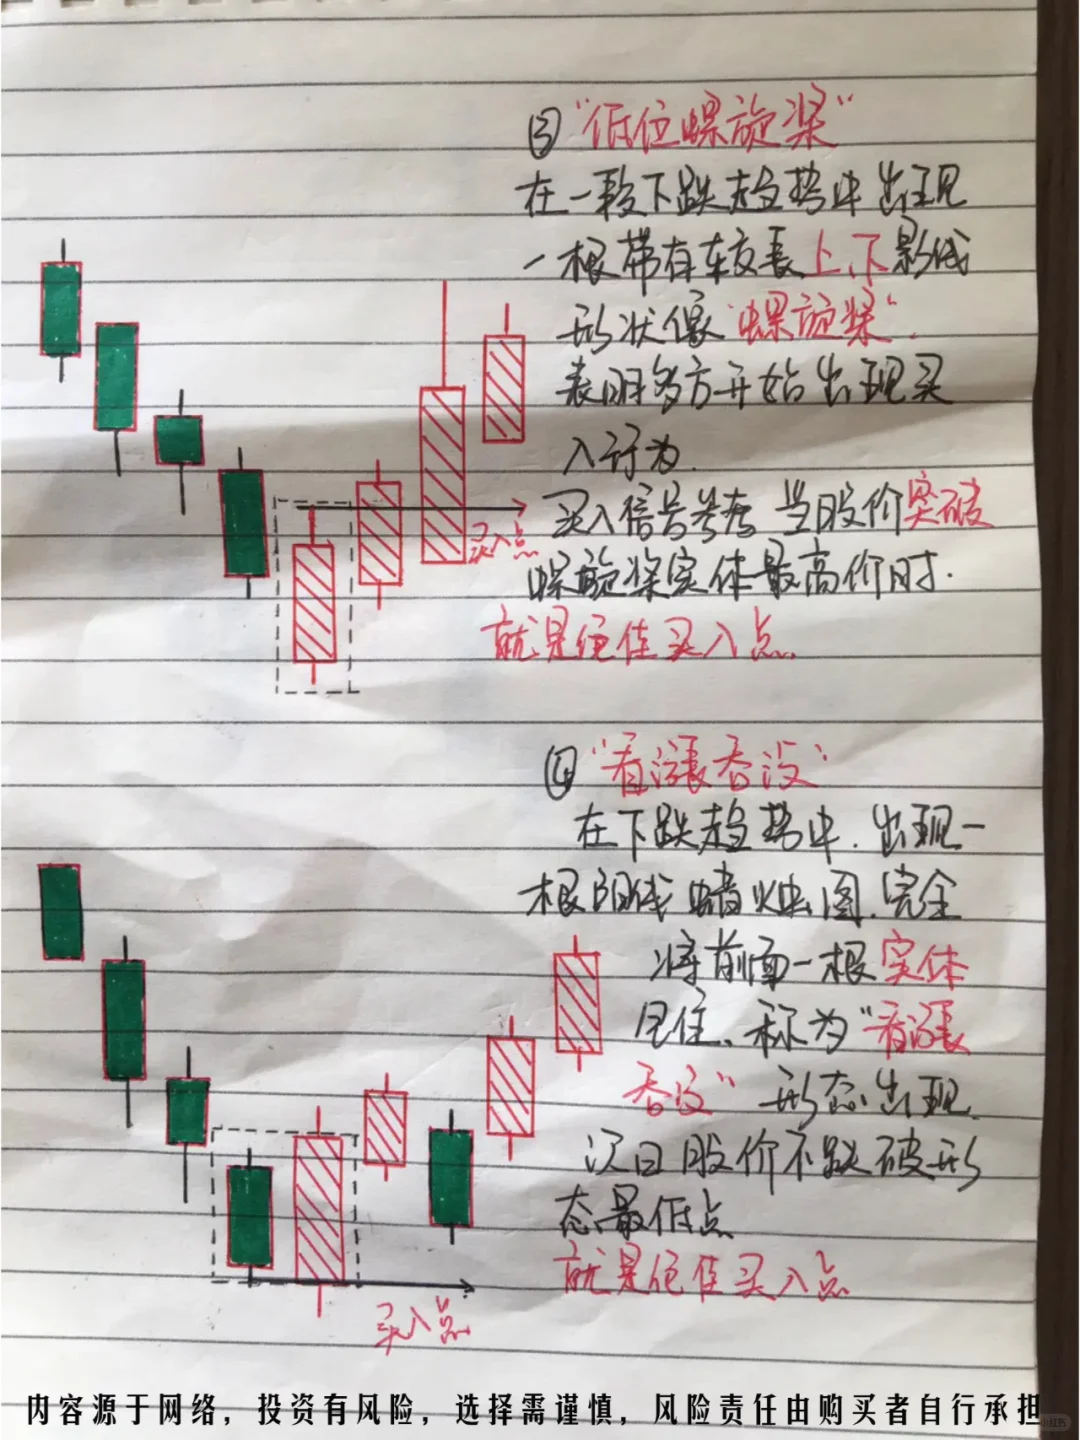 ③“低位螺旋桨”
在一段下跌趋势中出现
一根带有较长上、下影线
形状像“螺旋桨”.
表明多方开始出现买
入行为.
买入信号参考 当股价突破
螺旋桨实体最高价时.
就是绝佳买入点.
买入点
④“看涨吞没”
在下跌趋势中.出现一
根阳线蜡烛图.完全
将前面一根实体
包住、称为“看涨
吞没”形态出现.
次日股价不跌破形
态最低点
就是绝佳买入点
买入点
内容源于网络，投资有风险，选择需谨慎，风险责任由购买者自行承担
小红书